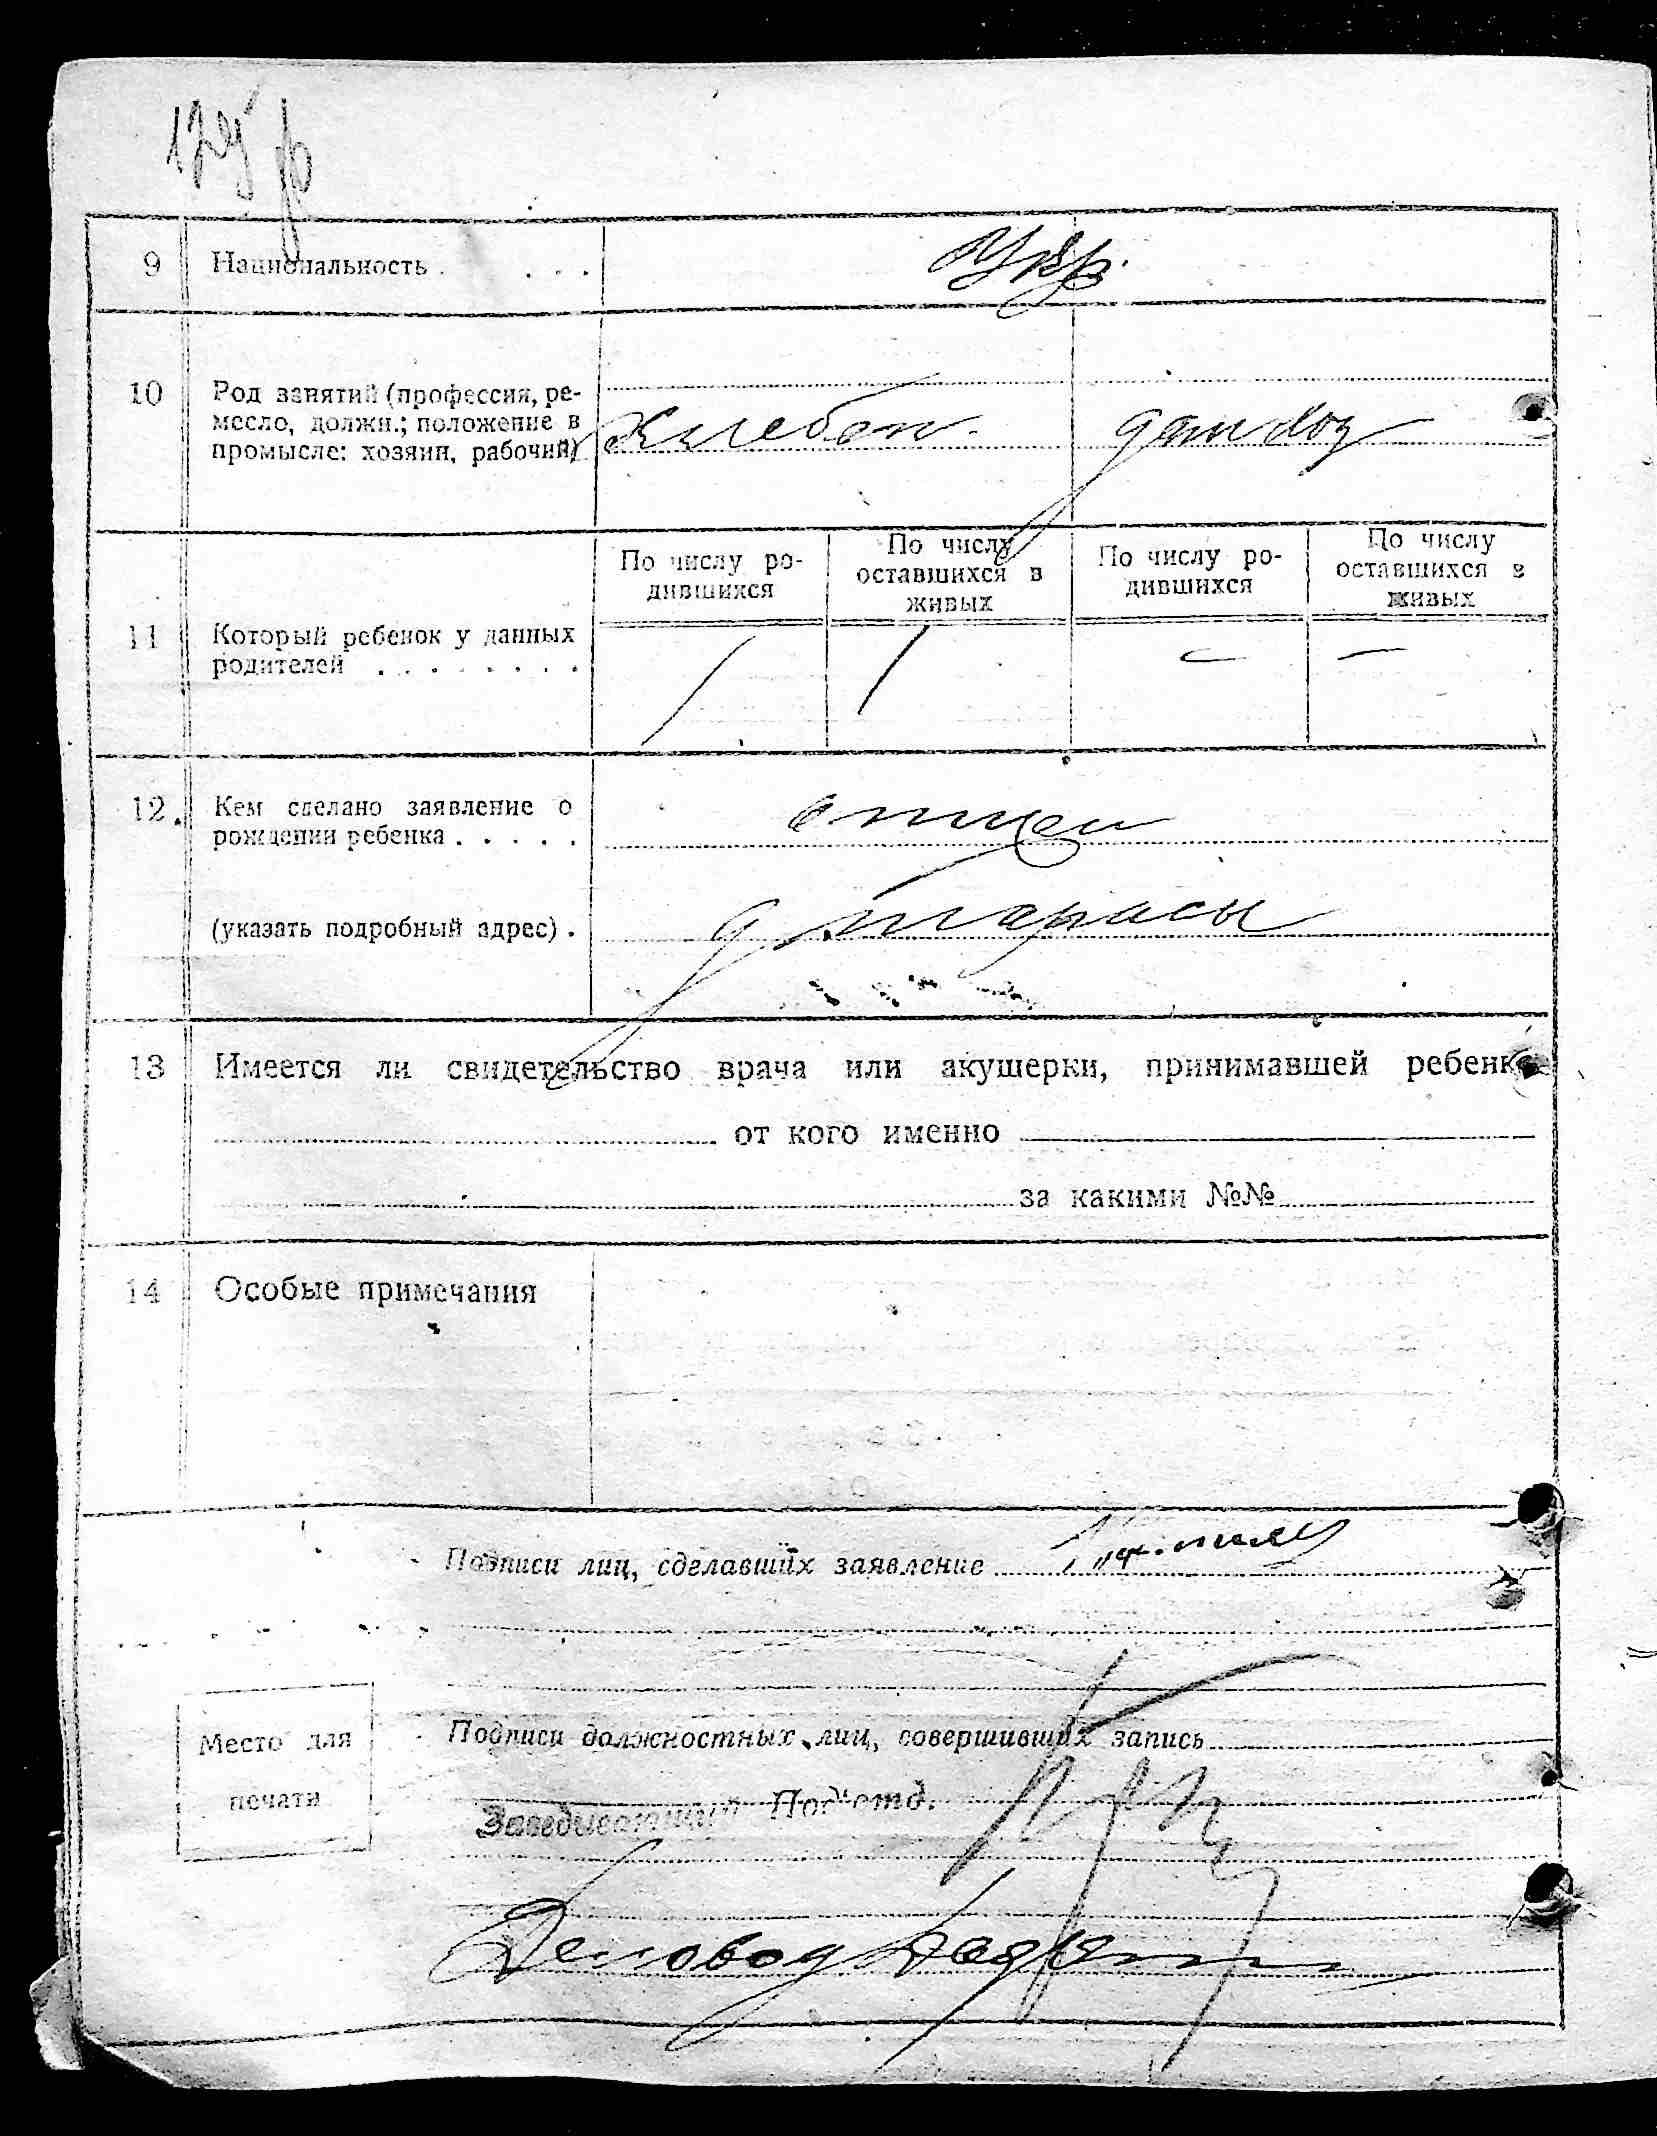 9 Национальность . . . . Укр.
10 Род занятий (профессия, ре-
месло, должн.; положение в
промысле: хозяин, рабочий) Хлебоп. домхоз
По числу ро- По числу По числу ро- По числу
дившихся оставшихся в дившихся оставшихся в
живых живых
11 Который ребенок у данных
родителей . . . . . . . . 1 1 — —
12. Кем сделано заявление о
рождении ребенка . . . . . отцем
(указать подробный адрес) . д. Тарасы
13 Имеется ли свидетельство врача или акушерки, принимавшей ребенка
от кого именно
за какими №№
14 Особые примечания
Подписи лиц, сделавших заявление
Подписи должностных лиц, совершивших запись
Место для
печати
Заведывающий Под'отд.
Деловод